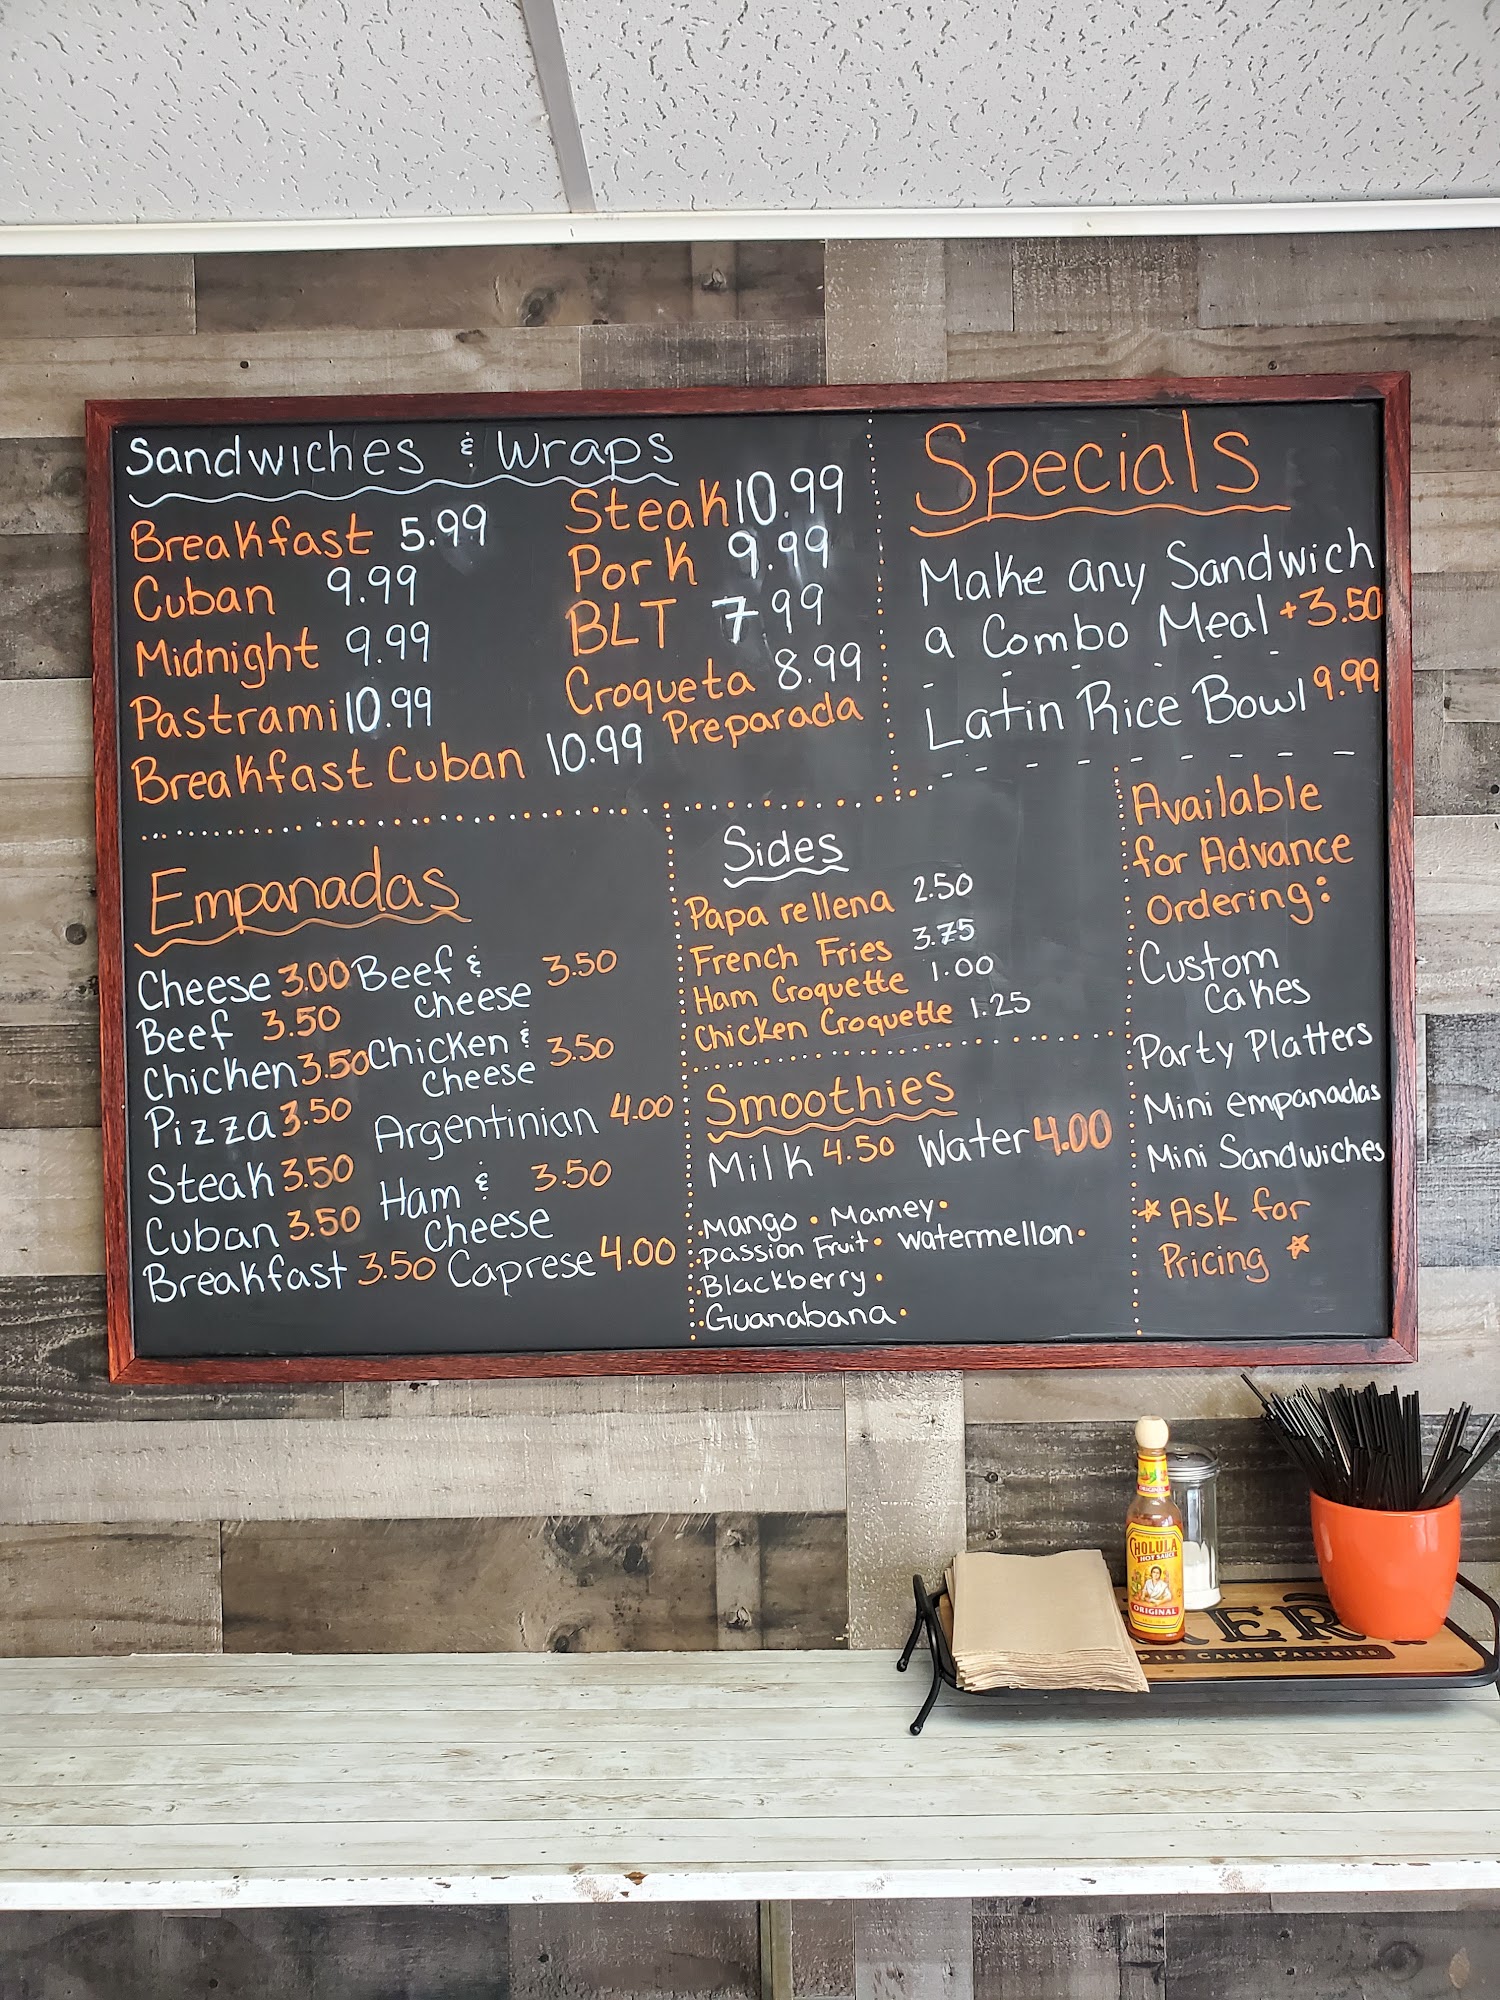 Sandwiches & Wraps
Breakfast 5.99
Cuban 9.99
Midnight 9.99
Pastrami 10.99
Breakfast Cuban 10.99
Steak 10.99
Pork 9.99
BLT 7.99
Croqueta 8.99
Preparada
Specials
Make any Sandwich
a Combo Meal +3.50
Latin Rice Bowl 9.99
Empanadas
Cheese 3.00
Beef 3.50
Chicken 3.50
Pizza 3.50
Steak 3.50
Cuban 3.50
Breakfast 3.50
Beef & 3.50
Cheese
Chicken & 3.50
Cheese
Argentinian 4.00
Ham & 3.50
Cheese
Caprese 4.00
Sides
Papa rellena 2.50
French Fries 3.75
Ham Croquette 1.00
Chicken Croquette 1.25
Smoothies
Milk 4.50 Water 4.00
Mango • Mamey •
Passion Fruit • Watermellon •
Blackberry •
Guanabana •
Available
for Advance
Ordering:
Custom
Cakes
Party Platters
Mini empanadas
Mini Sandwiches
* Ask for
Pricing *
CHOLULA
HOT SAUCE
ORIGINAL
PIES CAKES PASTRIES